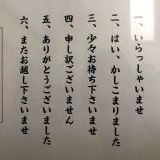 一、いらっしゃいませ
二、はい、かしこまりました
三、少々お待ち下さいませ
四、申し訳ございません
五、ありがとうございました
六、またお越し下さいませ